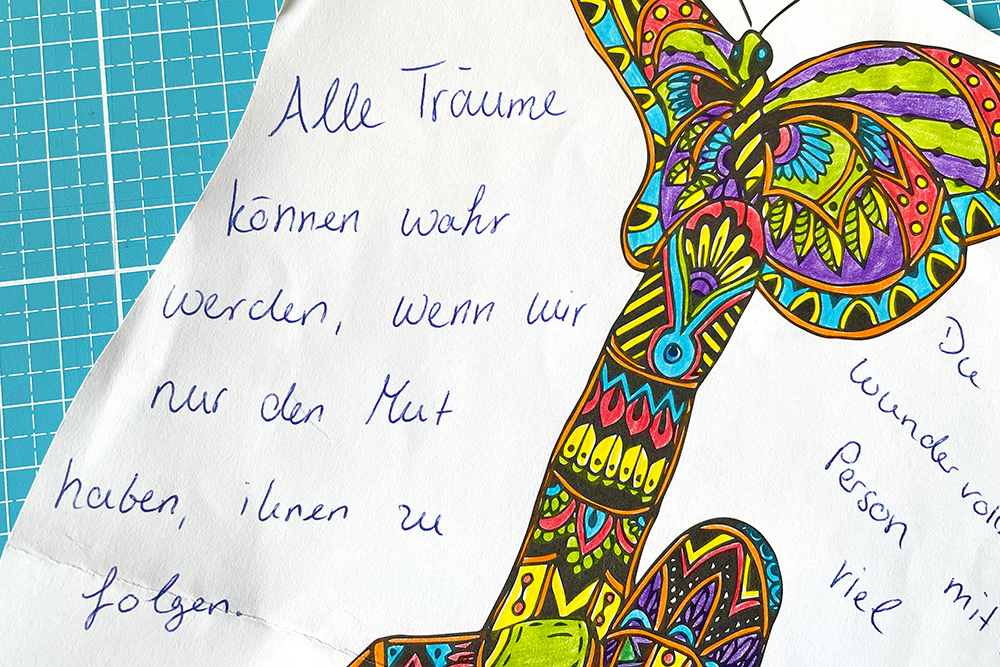 Alle Träume
können wahr
werden, wenn wir
nur den Mut
haben, ihnen zu
folgen.
Du
wundervoll
Person mit
viel